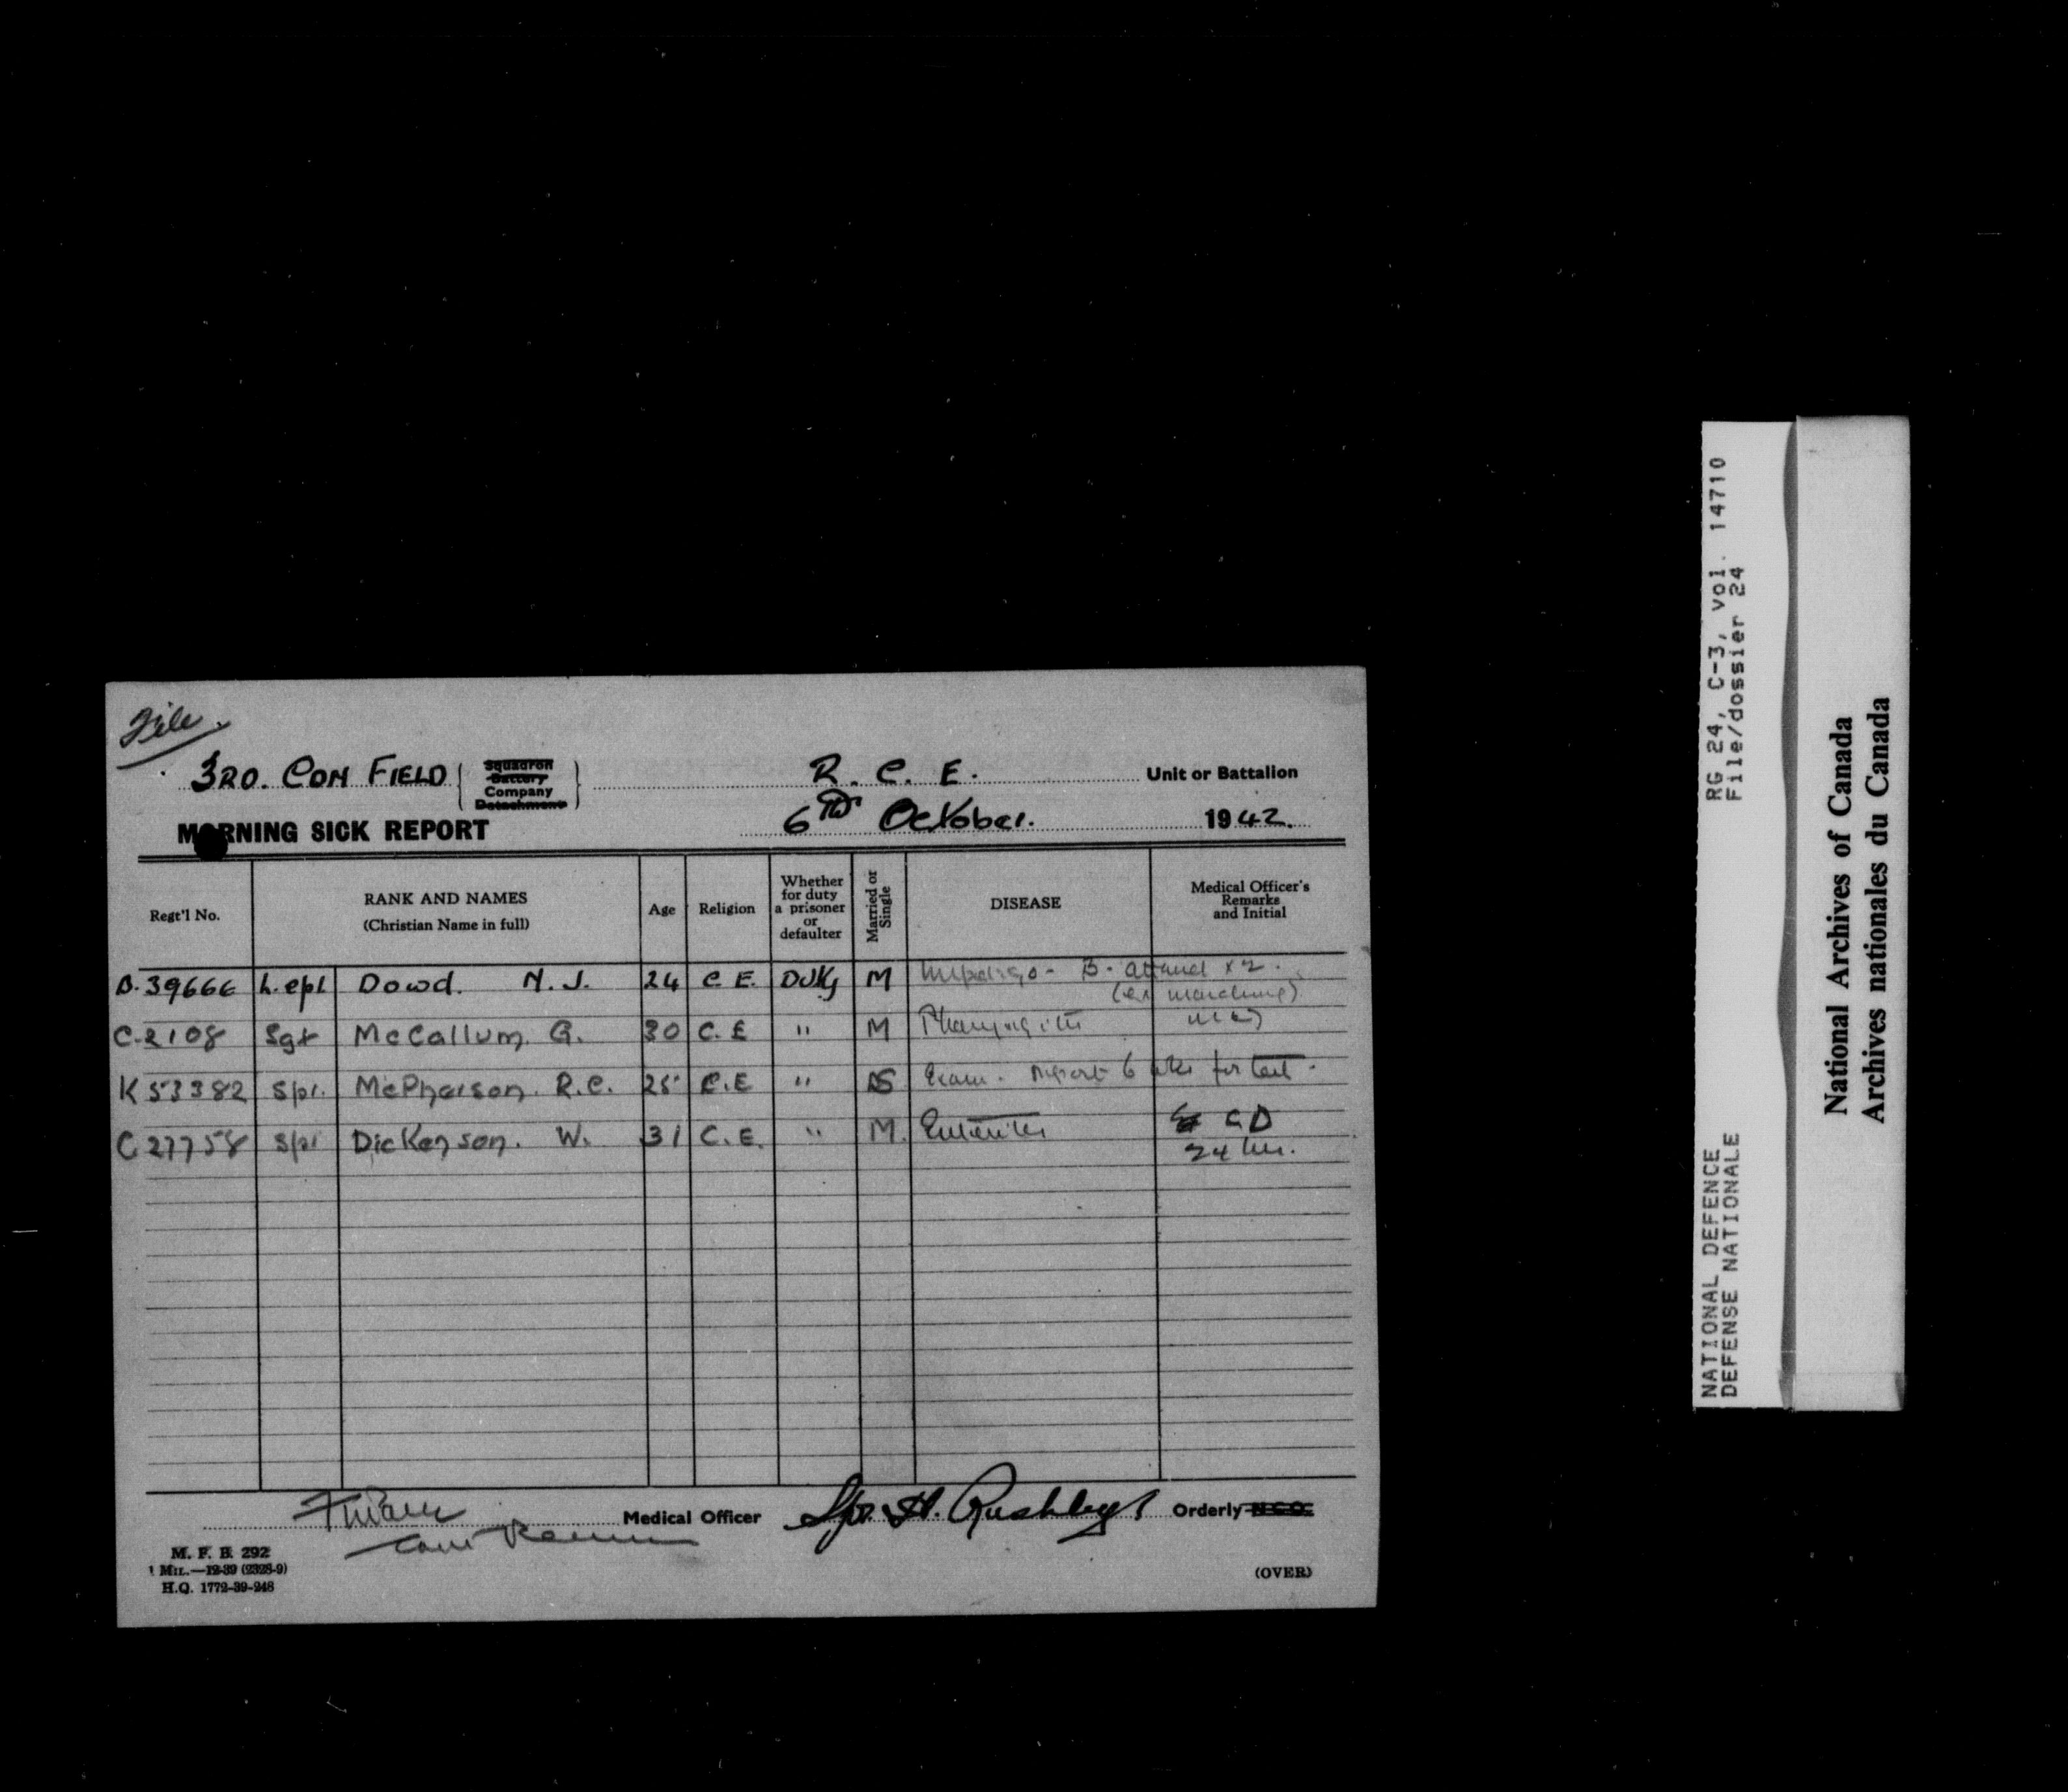 File.
3RD. CON FIELD { Squadron Battery Company Detachment } R. C. E. Unit or Battalion
MORNING SICK REPORT 6TH October. 1942.
Regt'l No. RANK AND NAMES (Christian Name in full) Age Religion Whether for duty a prisoner or defaulter Married or Single DISEASE Medical Officer's Remarks and Initial
B.39666 L.cpl Dowd. N.J. 24 C E. Duty M Impetigo - B. attend x 2.
(ex marching)
C.2108 Sgt McCallum G. 30 C.E " M Pharyngitis M & D
K 53382 Spr. McPherson. R.C. 25 C.E " S Exam. report 6 wks for test.
C 27758 Spr Dickenson. W. 31 C.E. " M. Enteritis LD
24 hrs.
Medical Officer Spr. H. Rushby Orderly N.C.O.
M. F. B. 292
1 Mil.—12-39 (2328-9)
H.Q. 1772-39-248
(OVER)
RG 24, C-3, vol. 14710
File/dossier 24
NATIONAL DEFENCE
DEFENSE NATIONALE
National Archives of Canada
Archives nationales du Canada